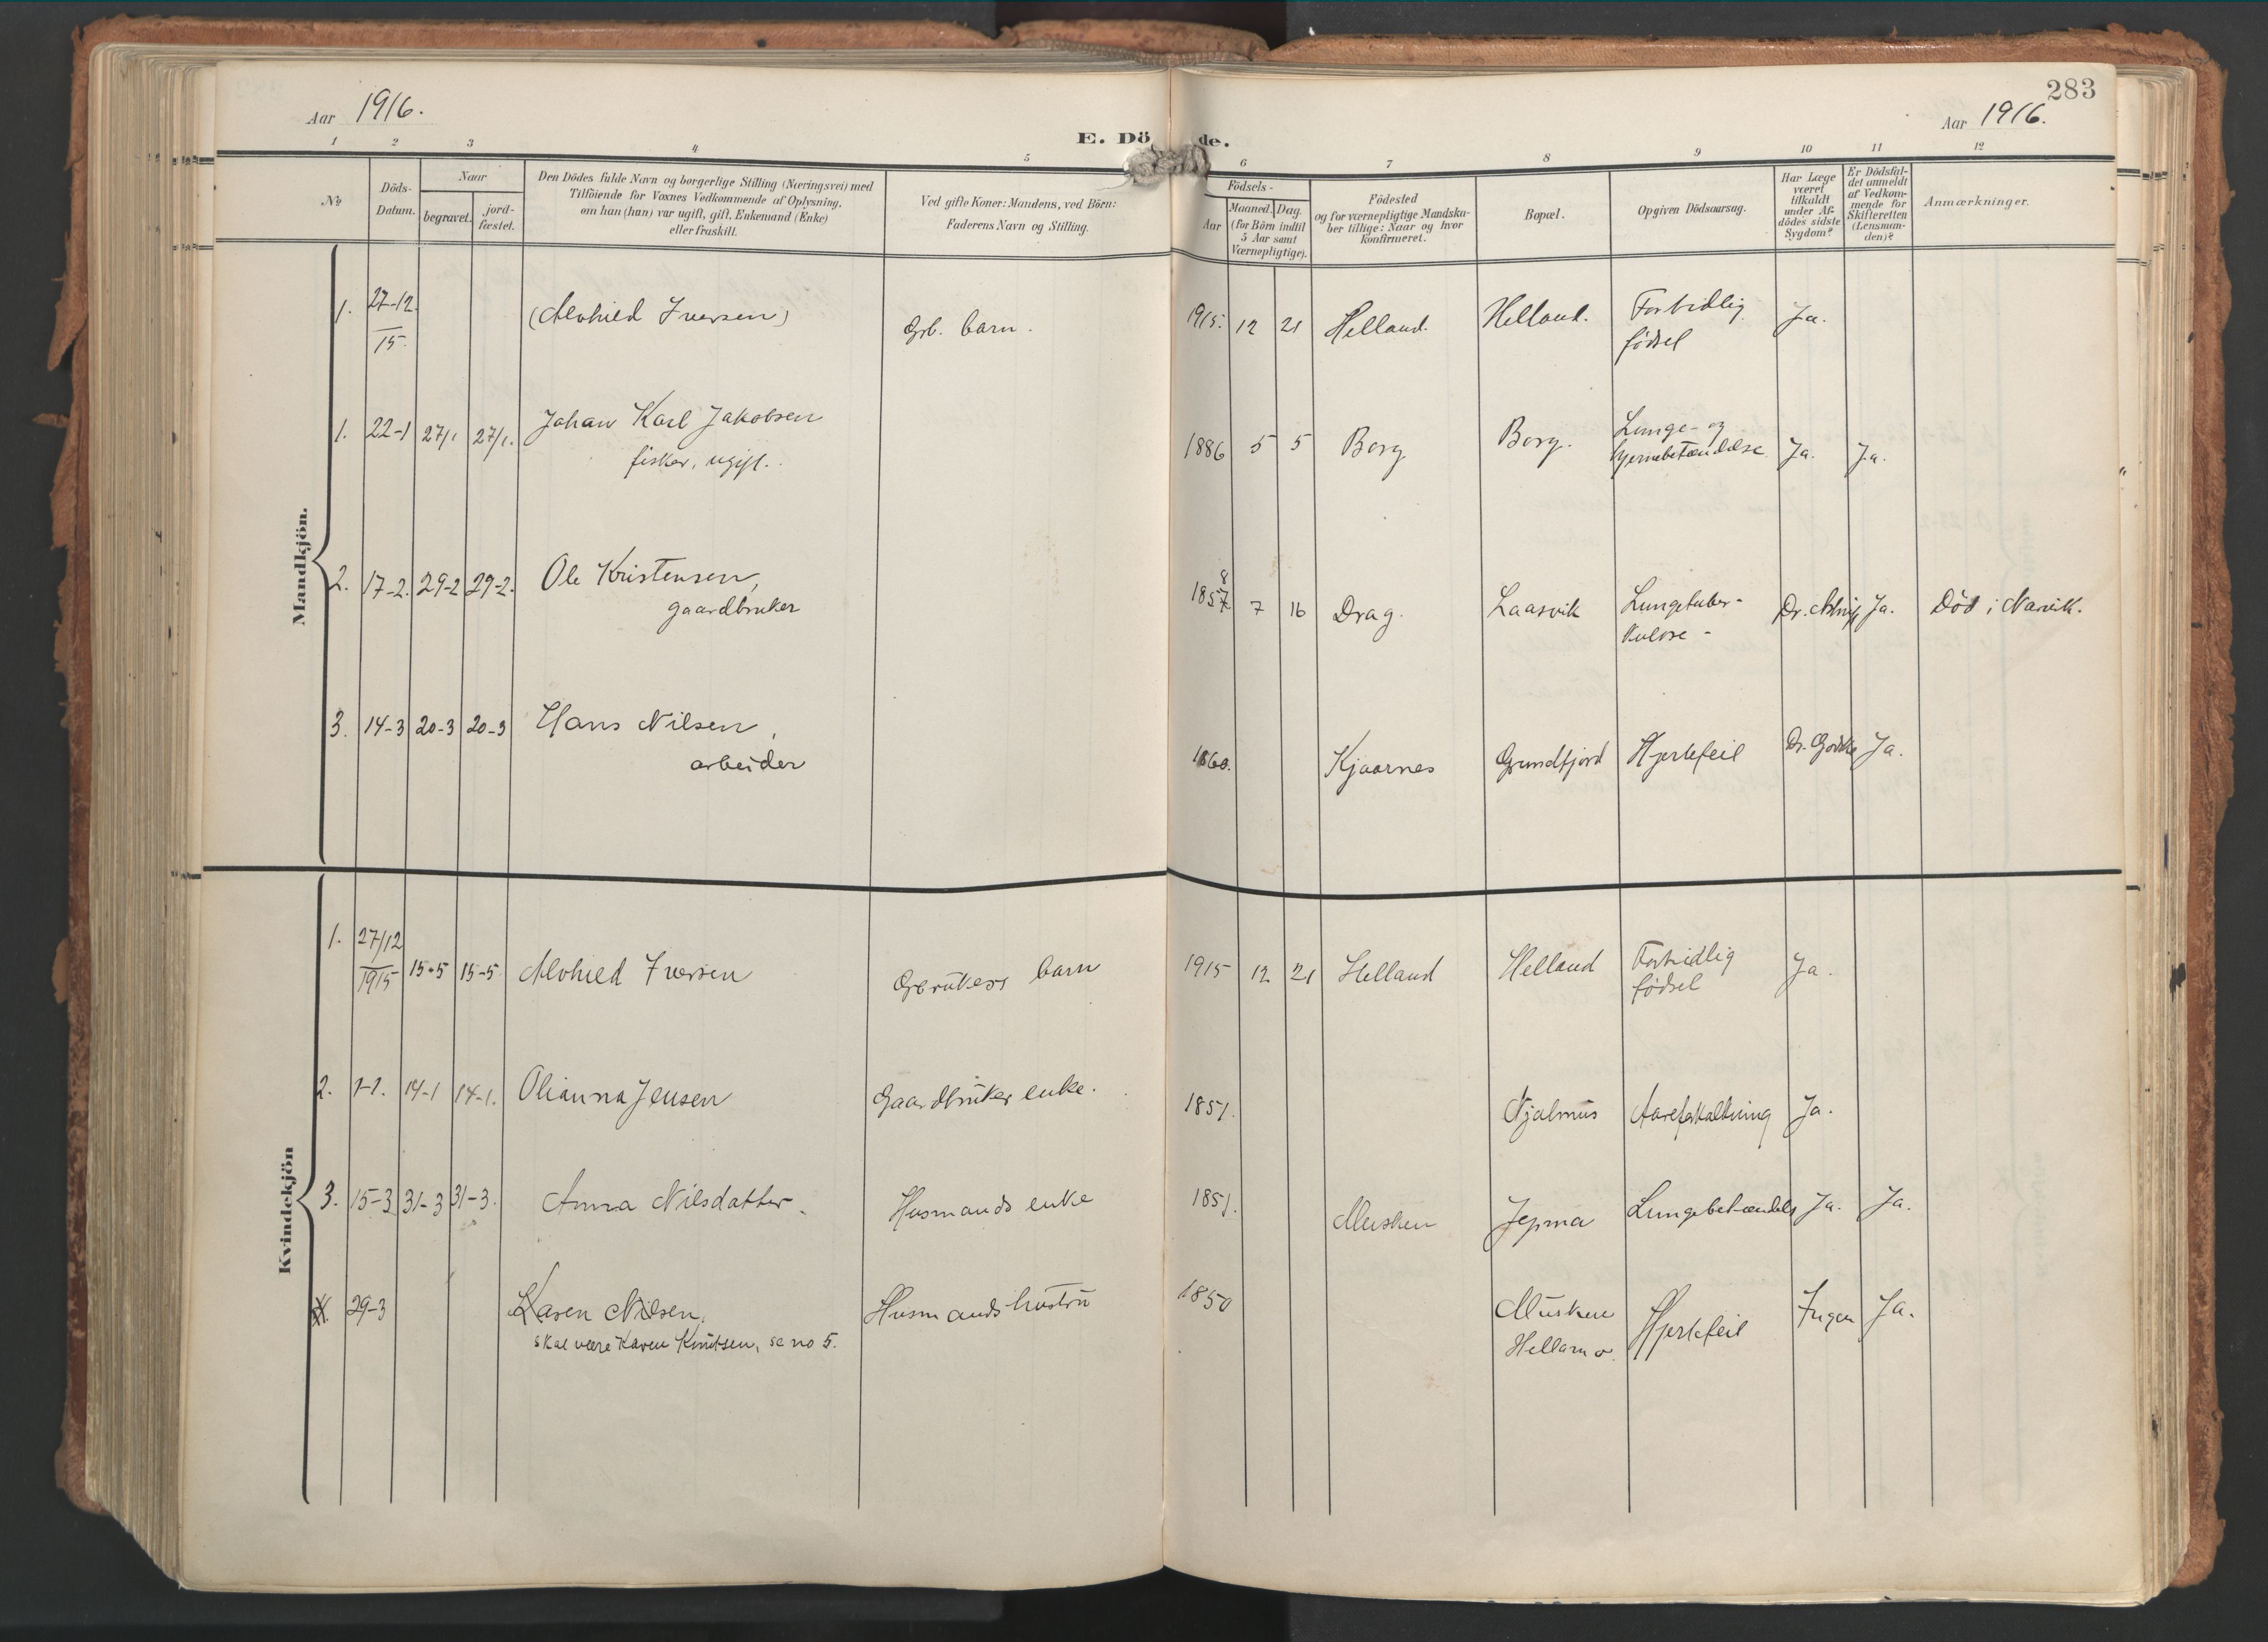 283
Aar 1916.
Aar 1916.
E. Döde.
1 2 3 4 5 6 7 8 9 10 11 12
No
Döds-
Datum.
Naar
begravet.
jord-
fæstet.
Den Dödes fulde Navn og borgerlige Stilling (Næringsvei) med
Tilföiende for Voxnes Vedkommende af Oplysning,
om han (hun) var ugift, gift, Enkemand (Enke)
eller fraskilt.
Ved gifte Koner: Mandens, ved Börn:
Faderens Navn og Stilling.
Födsels-
Aar
Maaned. Dag.
(for Börn indtil
5 Aar samt
Værnepligtige).
Födested
og for værnepligtige Mandska-
ber tillige: Naar og hvor
konfirmeret.
Bopæl.
Opgiven Dödsaarsag.
Har Læge
været
tilkaldt
under Af-
dödes sidste
Sygdom?
Er Dödsfal-
det anmeldt
af Vedkom-
mende for
Skifteretten
(Lensman-
den)?
Anmærkninger.
Mandkjön.
1. 27-12 (Alvhild Iversen) Grb. barn. 1915. 12 21 Helland. Helland. Fortidlig Ja.
15. födsel
1. 22-1 27/1 27/1. Johan Karl Jakobsen 1886 5 5 Borg Borg. Lunge- og Ja. Ja.
fisker, ugift. hjernebetændelse
2. 17-2. 29-2 29-2. Ole Kristensen, 1857 8 7 16 Drag. Laasvik Lungetuber- Dr. Ja. Död i Narvik.
gaardbruker kulose -
3. 14-3 20-3 20-3 Hans Nilsen, 1860. Kjaarnes Grundfjord Hjertefeil Dr. Ja.
arbeider
Kvindekjön
1. 27/12 15-5 15-5. Alvhild Iversen Gbrukers barn 1915 12 21 Helland Helland Fortidlig Ja.
1915 födsel
2. 1-1. 14-1 14-1. Olianna Jensen Gaardbruker enke. 1851. Njalmus Aareforkalkning Ja.
3. 15-3 31-3 31-3. Anna Nilsdatter Husmands enke 1851. Musken Jepma Lungebetændels Ja. Ja.
4. 29-3 Karen Nilsen, Husmands hustru 1850 Musken Hjertefeil Ingen Ja.
skal være Karen Knutsen, se no 5. Hellamo.